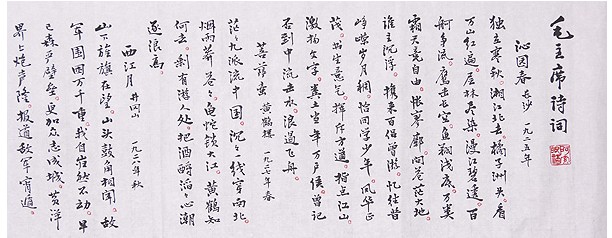 毛主席诗词
沁园春 长沙 一九二五年
独立寒秋。湘江北去。橘子洲头。看
万山红遍。层林尽染。漫江碧透。百
舸争流。鹰击长空。鱼翔浅底。万类
霜天竞自由。怅寥廓。问苍茫大地。
谁主沉浮。携来百侣曾游。忆往昔
峥嵘岁月稠。恰同学少年。风华正
茂。书生意气。挥斥方遒。指点江山
激扬文字。粪土当年万户侯。曾记
否。到中流击水。浪遏飞舟。
菩萨蛮 黄鹤楼 一九二七年春
茫茫九派流中国。沉沉一线穿南北。
烟雨莽苍苍。龟蛇锁大江。黄鹤知
何去。剩有游人处。把酒酹滔滔。心潮
逐浪高。
西江月 井冈山 一九二八年秋
山下旌旗在望。山头鼓角相闻。敌
军围困万千重。我自岿然不动。早
已森严壁垒。更加众志成城。黄洋
界上炮声隆。报道敌军宵遁。